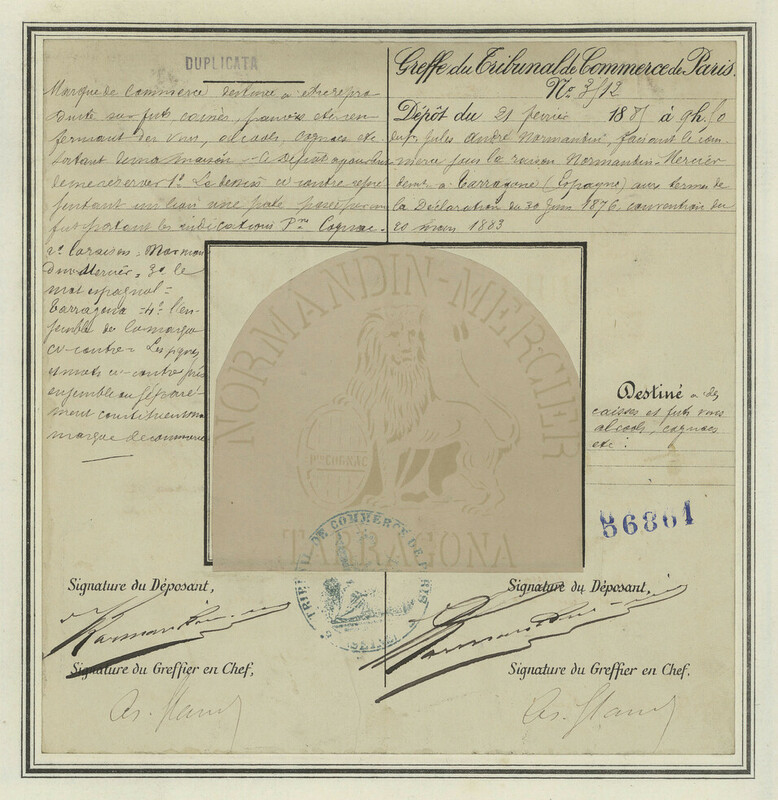 DUPLICATA
Marque de Commerce destinée à être repro
duite sur futs caisses, et ren
fermant des vins, alcools, cognacs etc
Sortant de ma maison - Ce Dépôt a pour but
de me réserver 1º Le dessin ci contre repré
sentant un lion une pate posée sur un
fut portant les indications Pre Cognac.
2º La raison = Norman
din Mercier = 3º le
mot espagnol =
Tarragona = 4º l'en-
semble de la marque
ci-contre = Les signes
et mots ci-contre pris
ensemble ou séparé
ment constituent ma
marque de commerce
Greffe du Tribunal de Commerce de Paris.
No 3/12
Dépôt du 21 février 188 à 9h.
du Sr Jules André Normandin, faisant le com
merce sous la raison Normandin-Mercier
demt à Tarragone (Espagne) aux termes de
la Déclaration du 30 Juin 1876, convention du
20 mars 1883
NORMANDIN-MERCIER
Pre COGNAC
TARRAGONA
Destiné à des
caisses et futs vins
alcools, cognacs
etc.
56801
TRIBUNAL DE COMMERCE DE PARIS
(SEINE)
Signature du Déposant,
Signature du Déposant,
Signature du Greffier en Chef,
Signature du Greffier en Chef.